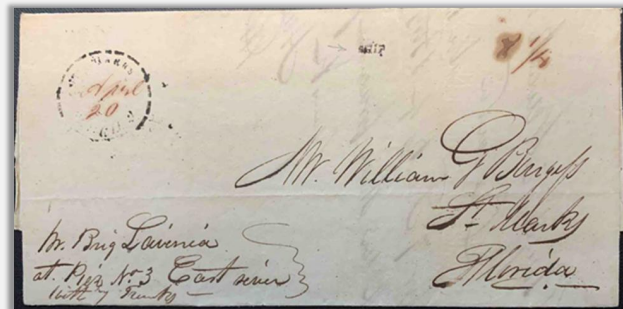 April
20
SHIP
Mr. William G Burgess
St Marks
Florida
Pr. Brig Lavinia
at Pier No 3 East river
with 7 Trunks